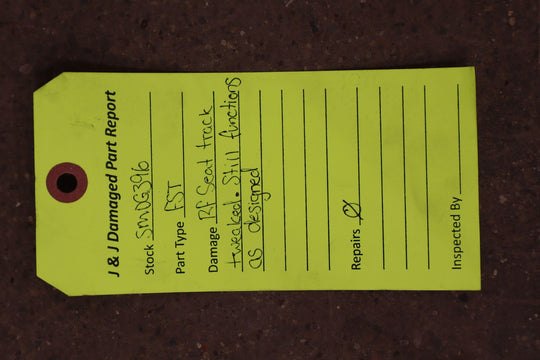 J & J Damaged Part Report
Stock SMDG3916
Part Type FST
Damage RF Seat track
tweaked. Still functions
as designed
Repairs Ø
Inspected By